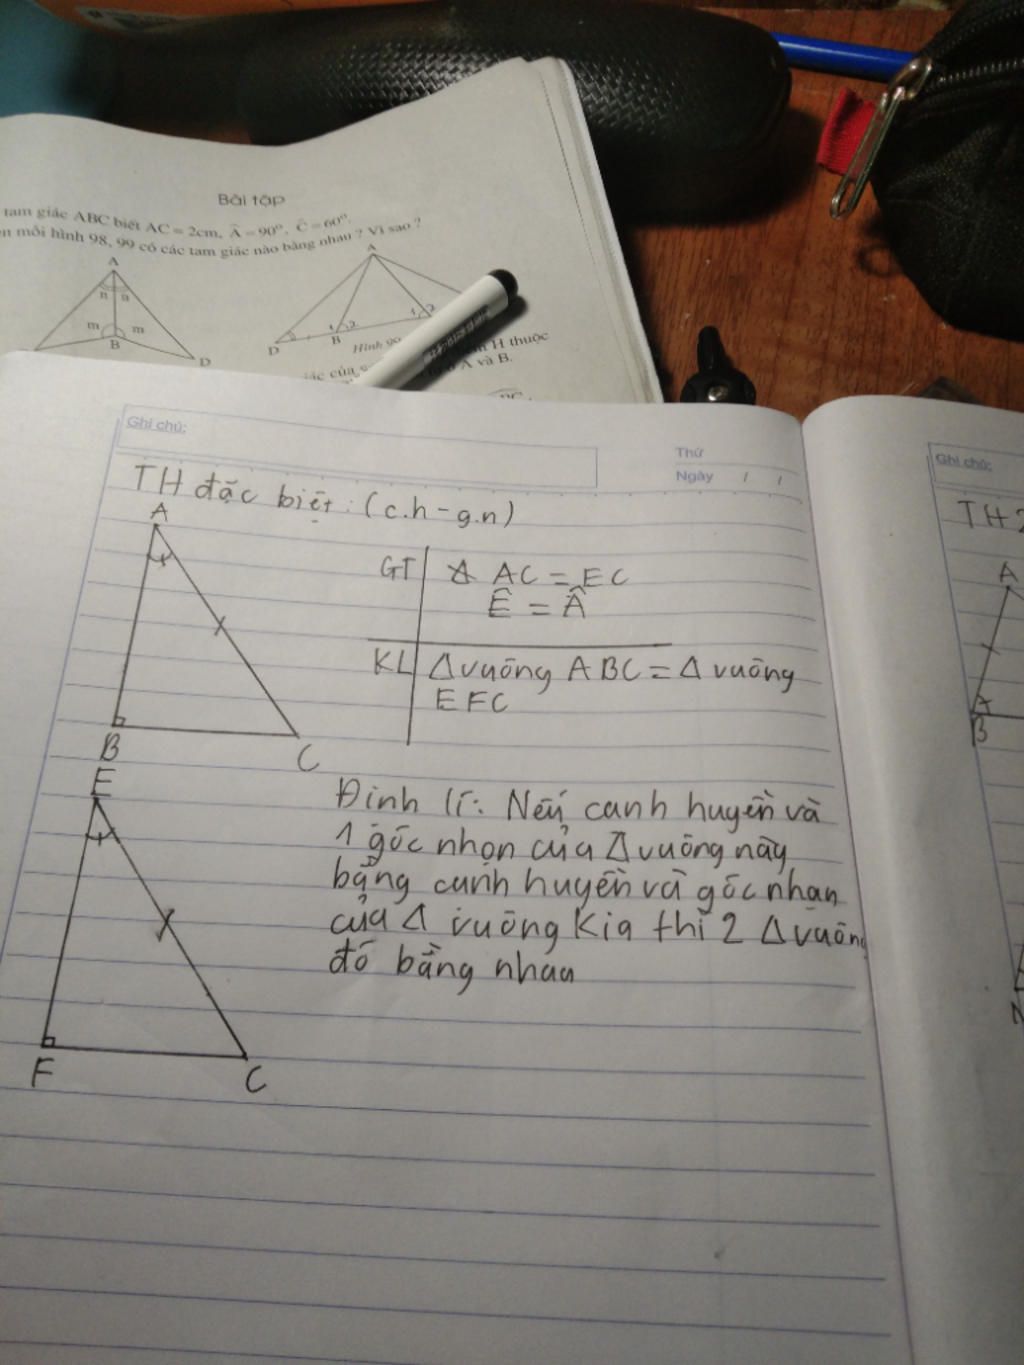 Bài tập
tam giác ABC biết AC = 2cm, Â = 90°, Ĉ = 60°.
mỗi hình 98, 99 có các tam giác nào bằng nhau ? Vì sao ?
A
n n
m m
B
D
A
1 2
1 2
D
B
Hình 99
H thuộc
A và B.
Ghi chú:
Thứ
Ngày / /
TH đặc biệt: (c.h - g.n)
A
B
C
GT AC = EC
Ê = Â
KL Δ vuông ABC = Δ vuông
EFC
E
F
C
Đinh lí: Nếu canh huyền và
1 góc nhọn của Δ vuông này
bằng cạnh huyền và góc nhọn
của Δ vuông kia thì 2 Δ vuông
đó bằng nhau
Ghi chú:
TH2
A
B